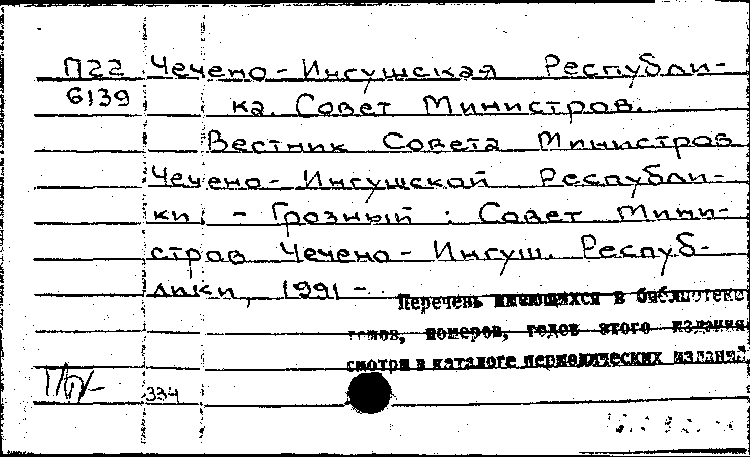 П22 Чечено-Ингушская Республи-
6139 ка. Совет Министров.
Вестник Совета Министров
Чечено-Ингушской Республи-
ки. - Грозный : Совет Мини-
стров Чечено-Ингуш. Респуб-
лики, 1991 -.
Перечень имеющихся в библиотеке
томов, номеров, годов этого издания
смотри в каталоге периодических изданий.
334